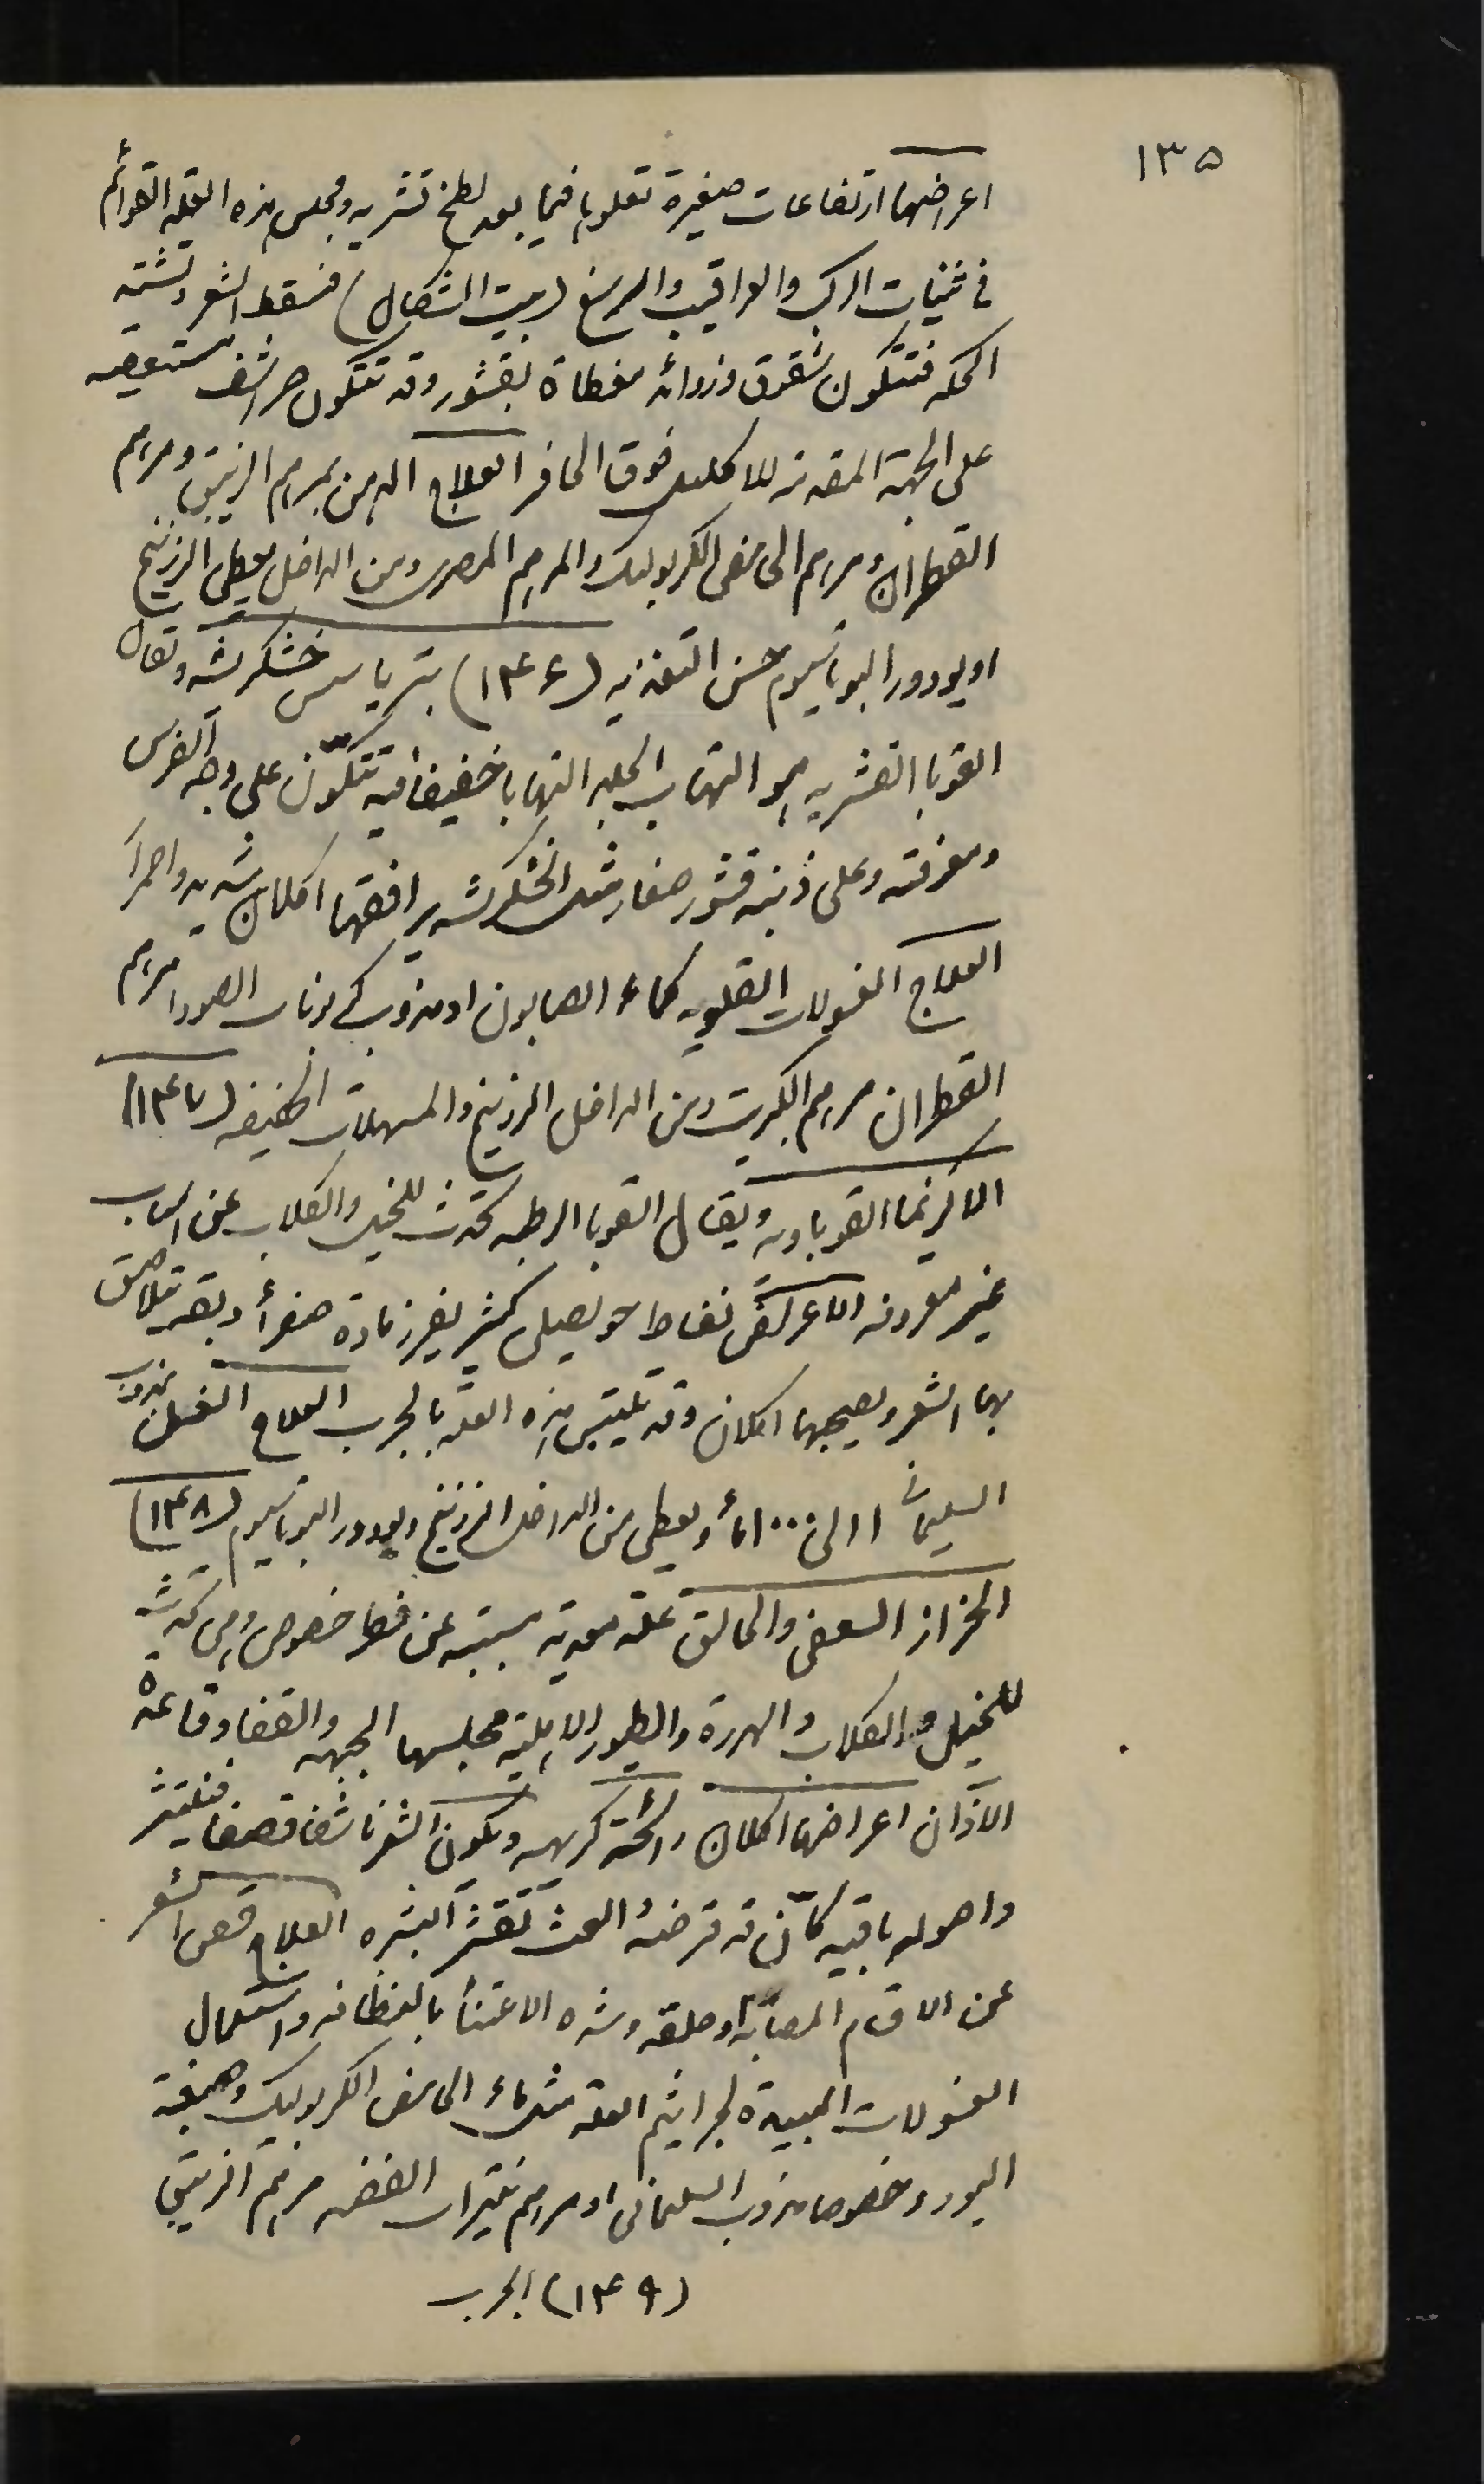 ١٣٥
اعراضها ارتفاعات صغيرة تعلوها فيما بعد لطخ قشريه ومجلس هذه العله القوائم
في ثنيات الركب والعراقيب والرسغ (مبيت الشكال) فسقط الشعر وتشتد
الحكه فتتكون شقوق وزوائد مغطاة بقشور وقد تتكون حراشف مستعصيه
على الجهة المقدمة للاكليل فوق الحافر العلاج الدهن بمرهم الزيبق ومرهم
القطران ومرهم الحامض الكربوليك والمرهم المصري ومن الداخل يعطى الزرنيخ
او يودور البوتاسيوم حسن التغذيه (١٣٤٦) بتريا سس خشكريشه ويقال
القوبا القشريه هو التهاب الجلد التهابا خفيفا فيه تتكون على وجه الفرس
ومعرفته وعلى ذنبه قشور صغار مثل الخشكريشه يرافقها اكلان شديد واحمرار
العلاج الغسولات القلويه كماء الصابون او مذوب كربونات الصودا مرهم
القطران مرهم الكبريت ومن الداخل الزرنيخ والمسهلات الخفيفه (١٣٤٧)
الاكزيما القوباويه ويقال القوبا الرطبه تحدث للخيل والكلاب عن اسباب
غير معروفه الاعراض نفاط حويصلي كثير يفرز مادة صفرأ وبقر تتلاصق
بها الشعر ويصحبها اكلان وقد تلتبس هذه العله بالجرب العلاج الغسل بمذوب
السليماني ١ الى ١٠٠٠ مأ ويعطى من الداخل الزرنيخ ويودور البوتاسيوم (١٣٤٨)
الحزاز السعفي والحالق علة معديه مسببه عن فطر خصوصي وهي تحدث
للخيل والكلاب والهررة والطيور الاهلية مجلسها الجبهه والقفا وقاعدة
الآذان اعراضها اكلان رائحة كريهه ويكون الشعر ناشفا قصفا فينتثر
واصوله باقيه كأن قد قرضه العث تقشر البشره العلاج قص الشعر
عن الاقسام المصابة او حلقه وشدة الاعتنأ بالنظافه واستعمال
الغسولات المبيدة لجراثيم العله مثل ماء الحامض الكربوليك وصبغة
اليود وخصوصا مذوب السليماني او مرهم نيترات الفضه مرهم الزيبق
(١٣٤٩) الجرب